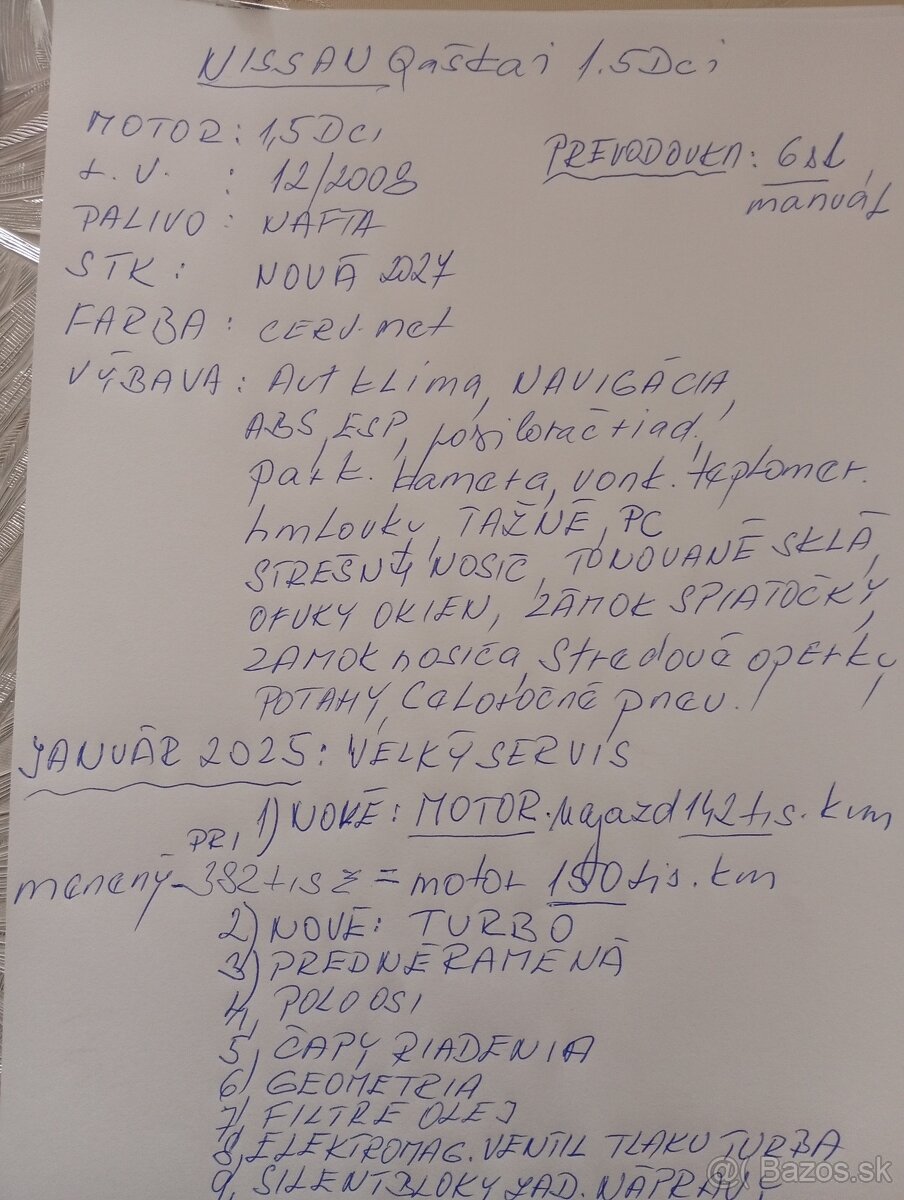 NISSAN Qaškai 1.5Dci
MOTOR: 1,5Dci
PREVODOVKA: 6 st,
manuál
r. V. : 12/2008
PALIVO : NAFTA
STK : NOVÁ 2027
FARBA : CERV. met
VÝBAVA : Aut klima, NAVIGÁCIA,
ABS, ESP, posilovač riad.,
park. kamera, vonk. teplomer.
hmlovky, TAŽNÉ, PC
STREŠNÝ NOSIČ, TONOVANÉ SKLÁ,
OFUKY OKIEN, ZÁMOK SPIATOČKY,
ZAMOK nosiča, Stredová operky,
POTAHY, Celoročné pneu. /
JANUÁR 2025: VELKÝ SERVIS
1) NOVÉ: MOTOR. Najazd 142 tis. km
PRI
menený - 382 tis = motor 150 tis. km
2) NOVÉ: TURBO
3) PREDNÉ RAMENÁ
4, POLOOSI
5, ČAPY RIADENIA
6) GEOMETRIA
7, FILTRE OLEJ
8, ELEKTROMAG. VENTIL TLAKU TURBA
9, SILENTBLOKY ZAD. NÁPRAVY
@ Bazos.sk